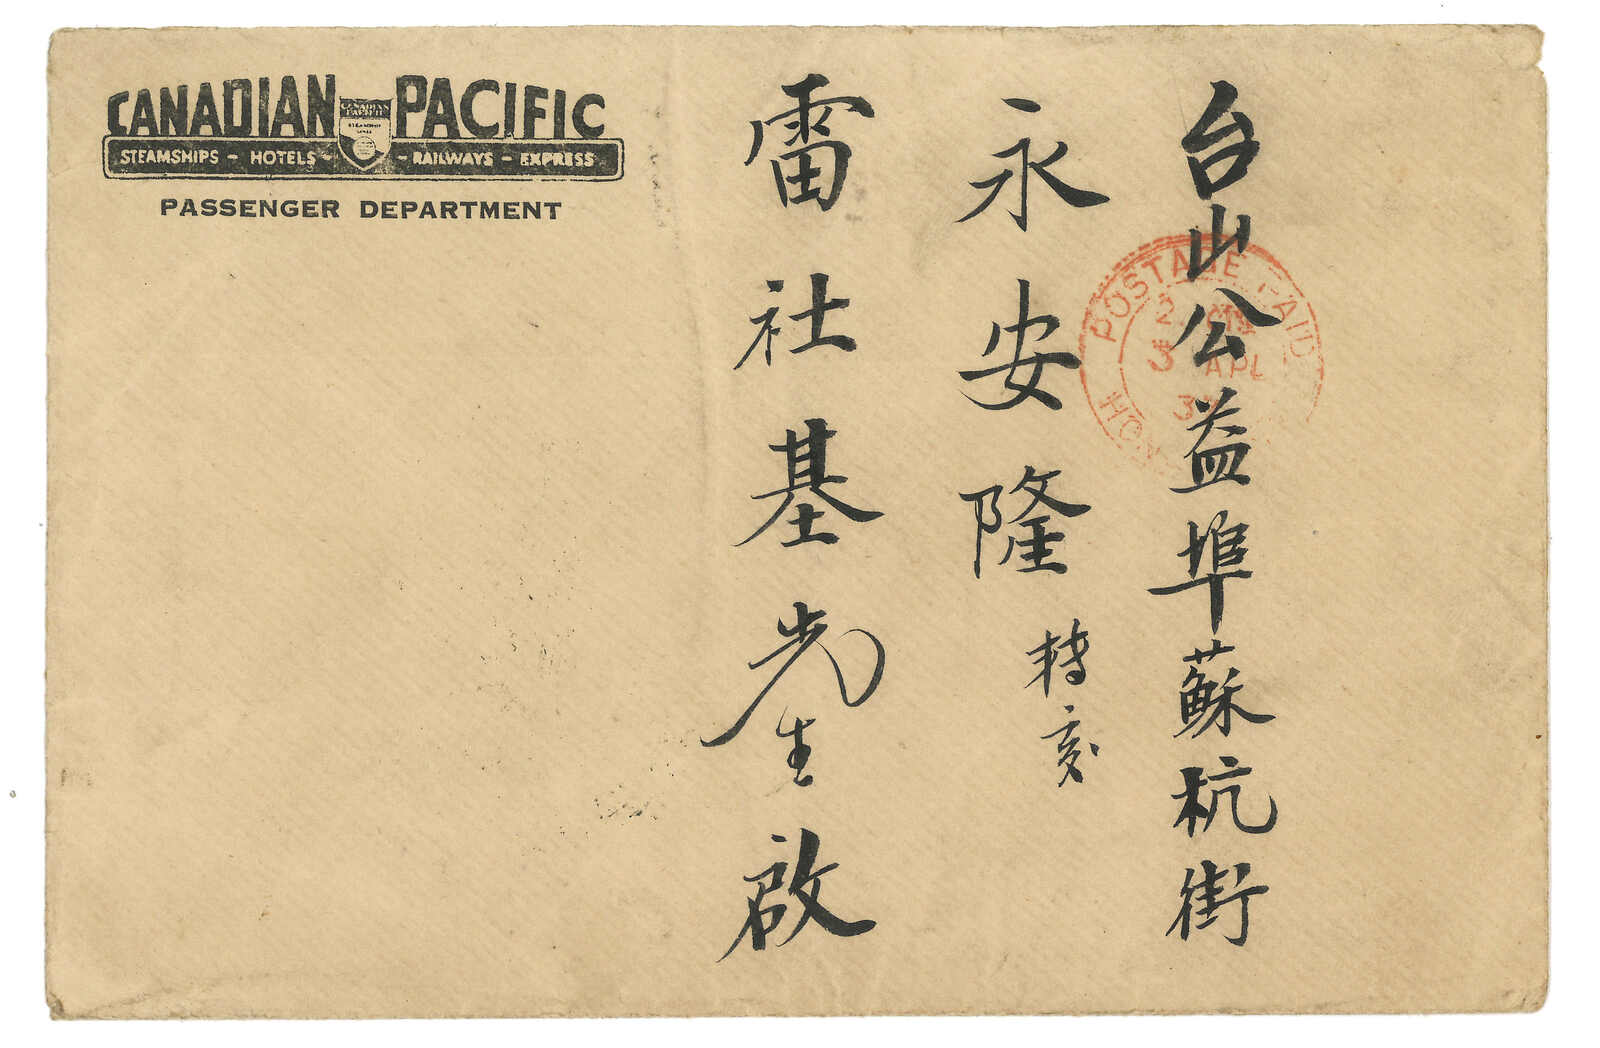 CANADIAN PACIFIC
CANADIAN PACIFIC
STEAMSHIPS - HOTELS - RAILWAYS - EXPRESS
PASSENGER DEPARTMENT
POSTAGE PAID
3 APL
HONG
台山公益埠蘇杭街
永安隆轉交
雷社基先生啟